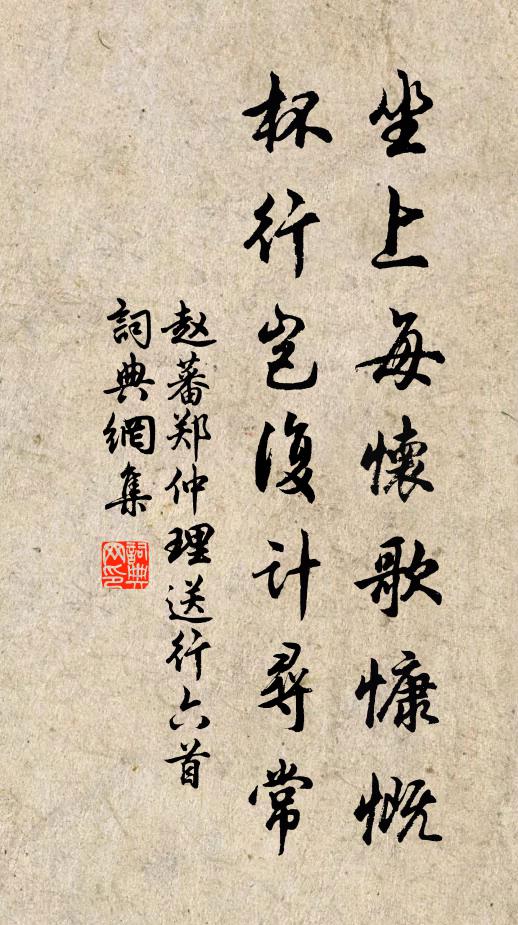 坐上每懷歌慷慨
杯行岂復计尋常
赵蕃郑仲理送行六首
詞典網集
詞典网印